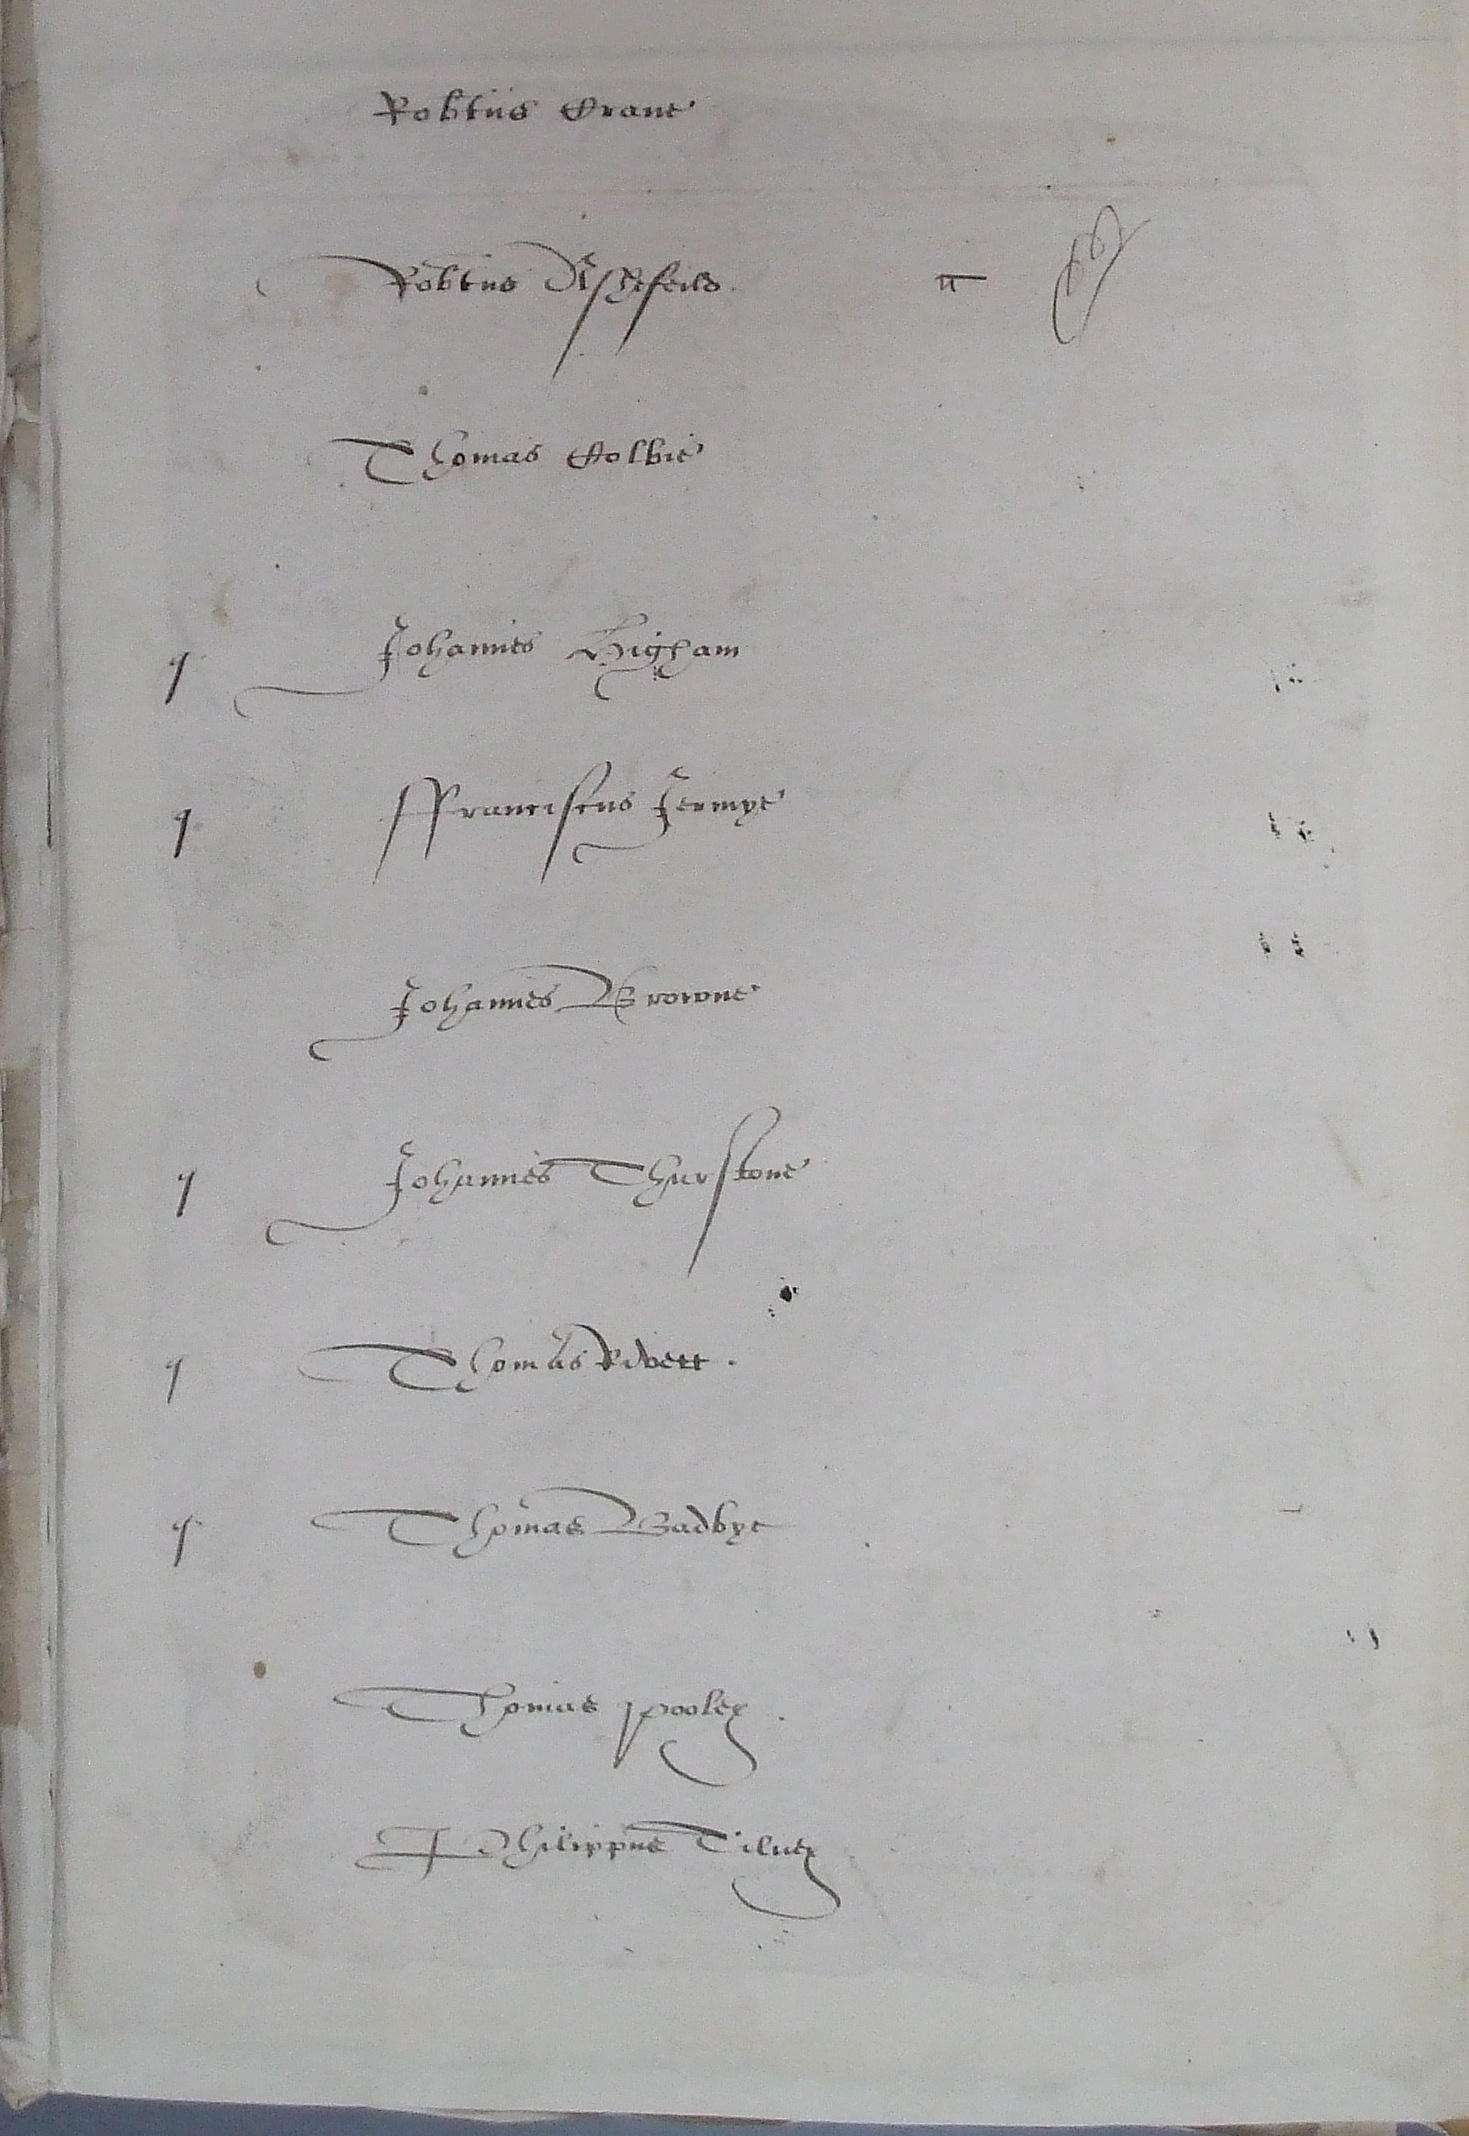 Robtus Crane
Robtus Ashefeild.
Thomas Colbie
q Johannes Higham
q ffranciscus Jermye
Johannes Browne
q Johannes Thurstone
q Thomas Rivett.
q Thomas Badbye
Thomas Pooley.
Philippus Tilney